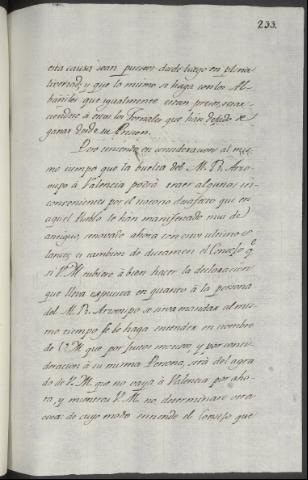 233.
esta causa, sean puestos desde luego en plena
livertad, y que lo mismo se haga con los Al-
bañiles que igualmente estan presos, resar-
ciendose à estos los Jornales que han dejado de
ganar desde su Prision.
Por ultimo, en consideracion al mis-
mo tiempo que la buelta del M. R. Arzo-
vispo à Valencia podrà traer algunos in-
convenientes por el notorio desafecto que en
aquel Pueblo le han manifestado mui de
antiguo, renovado ahora con este ultimo
lance; es tambien de dictamen el Consejo q.e
si V. M. tubiere à bien hacer la declaracion
que lleva expuesta en quanto à la persona
del M. R. Arzovispo se sirva mandar al mis-
mo tiempo se le haga entender en nombre
de V. M. que por justos motivos, y por consi-
deracion à su misma Persona, serà del agra-
do de V. M. que no vaya à Valencia por aho-
ra, y mientras V. M. no determinare otra
cosa: de cuyo modo entiende el Consejo que